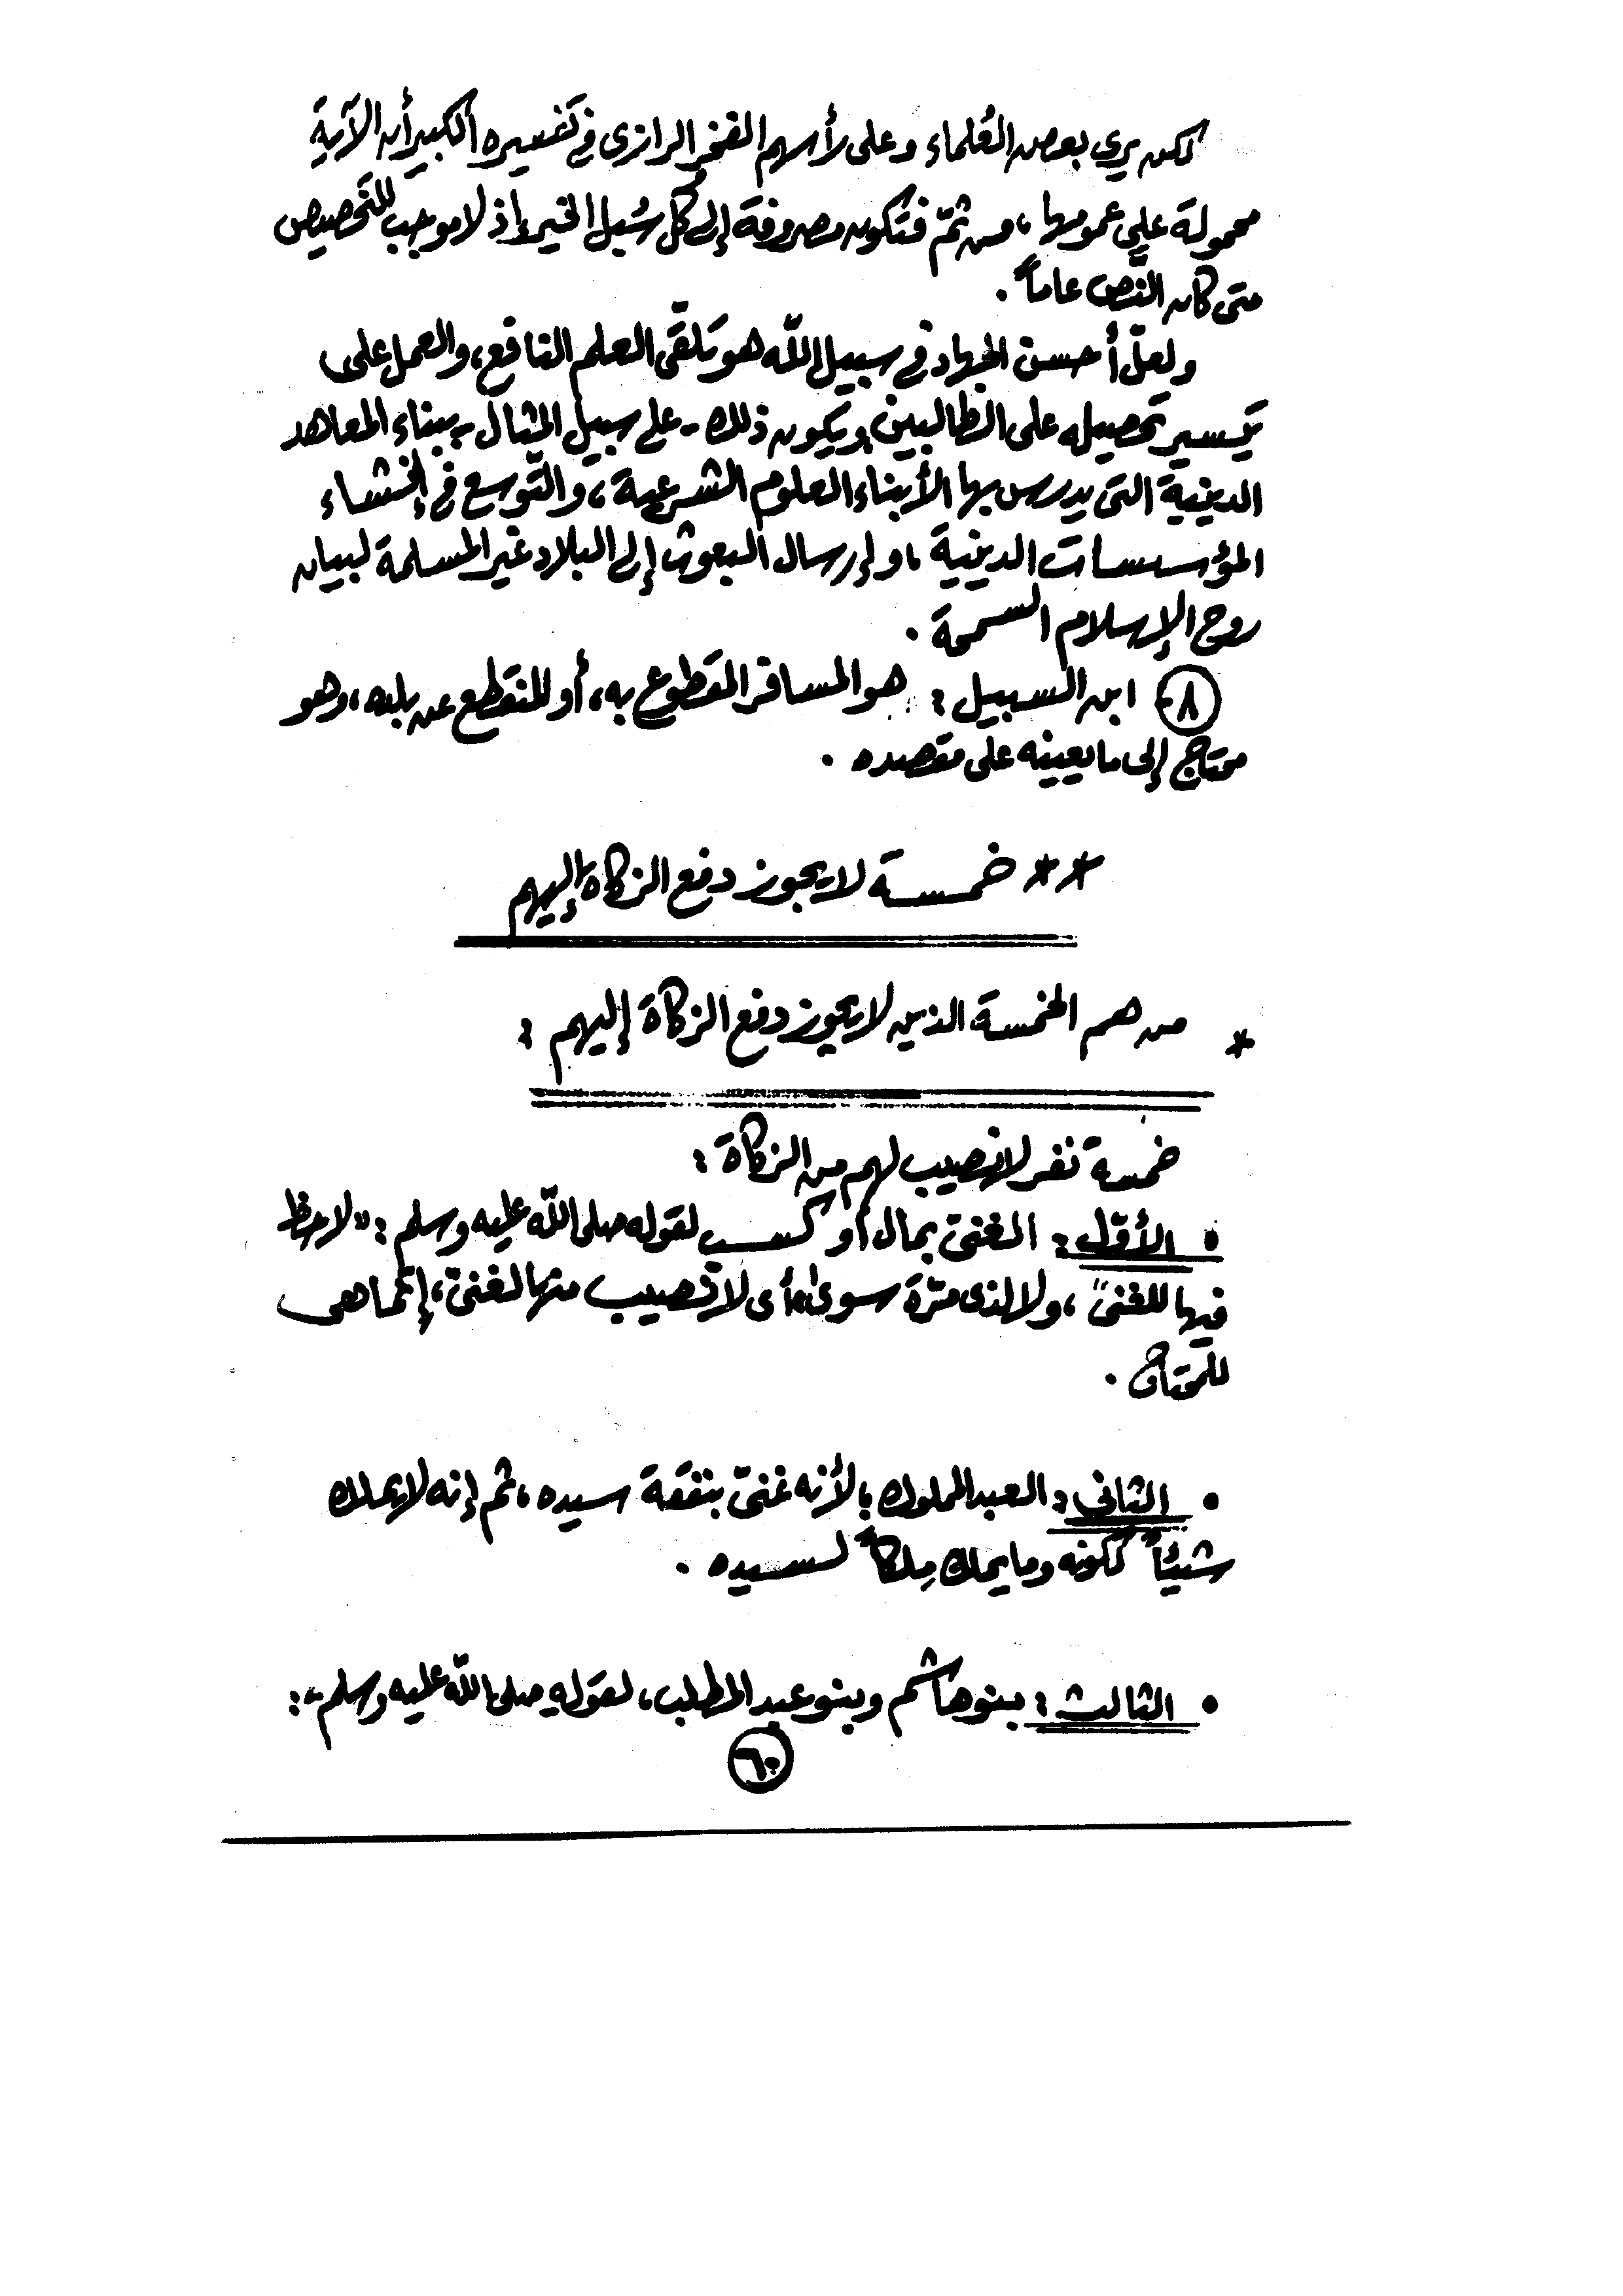 لكن يرى بعض العُلماء وعلى رأسهم الفخر الرازى في تفسيره الكبير أن الآية
محمولة على عمومها، من ثمّ فتكون مصروفة إلى كل سُبل الخير، إذ لا موجب للتخصيص
متى كان النّص عاماً .
ولعلّ أحسن الجهاد في سبيل الله هو تلقّى العلم النافع، والعمل على
تيسير تحصيله على الطالبين، ويكون ذلك - على سبيل المثال - ببناء المعاهد
الدينية التى يدرس بها الأبناء العلوم الشرعية، والتّوسع في إنشاء
المؤسسات الدينية، وإرسال البعوث إلى البلاد غير المسلمة لبيان
روح الإسلام السمحة .
٨- ابن السبيل : هو المسافر المقطوع به، أو المنقطع عن بلده، وهو
محتاج إلى ما يعينه على مقصده .
** خمسة لا يجوز دفع الزكاة إليهم
* من هم الخمسة الذين لا يجوز دفع الزكاة إليهم :
خمسة نفر لا نصيب لهم من الزكاة :
• الأوّل : الغنىّ بمال أو كسب لقوله صلى الله عليه وسلم : "لا حظ
فيها للغنىّ، ولا لذى مرّة سوى" أى لا نصيب منها لغنىّ، إنّما هى
للمحتاج .
• الثانى : العبد المملوك؛ لأنه غنىّ بنفقة سيده، ثم إنه لا يملك
شيئاً لكونه وما يملك مِلكاً لسيده .
• الثالث : بنو هاشم وبنو عبد المطلب، لقوله صلى الله عليه وسلم - :
٦٠